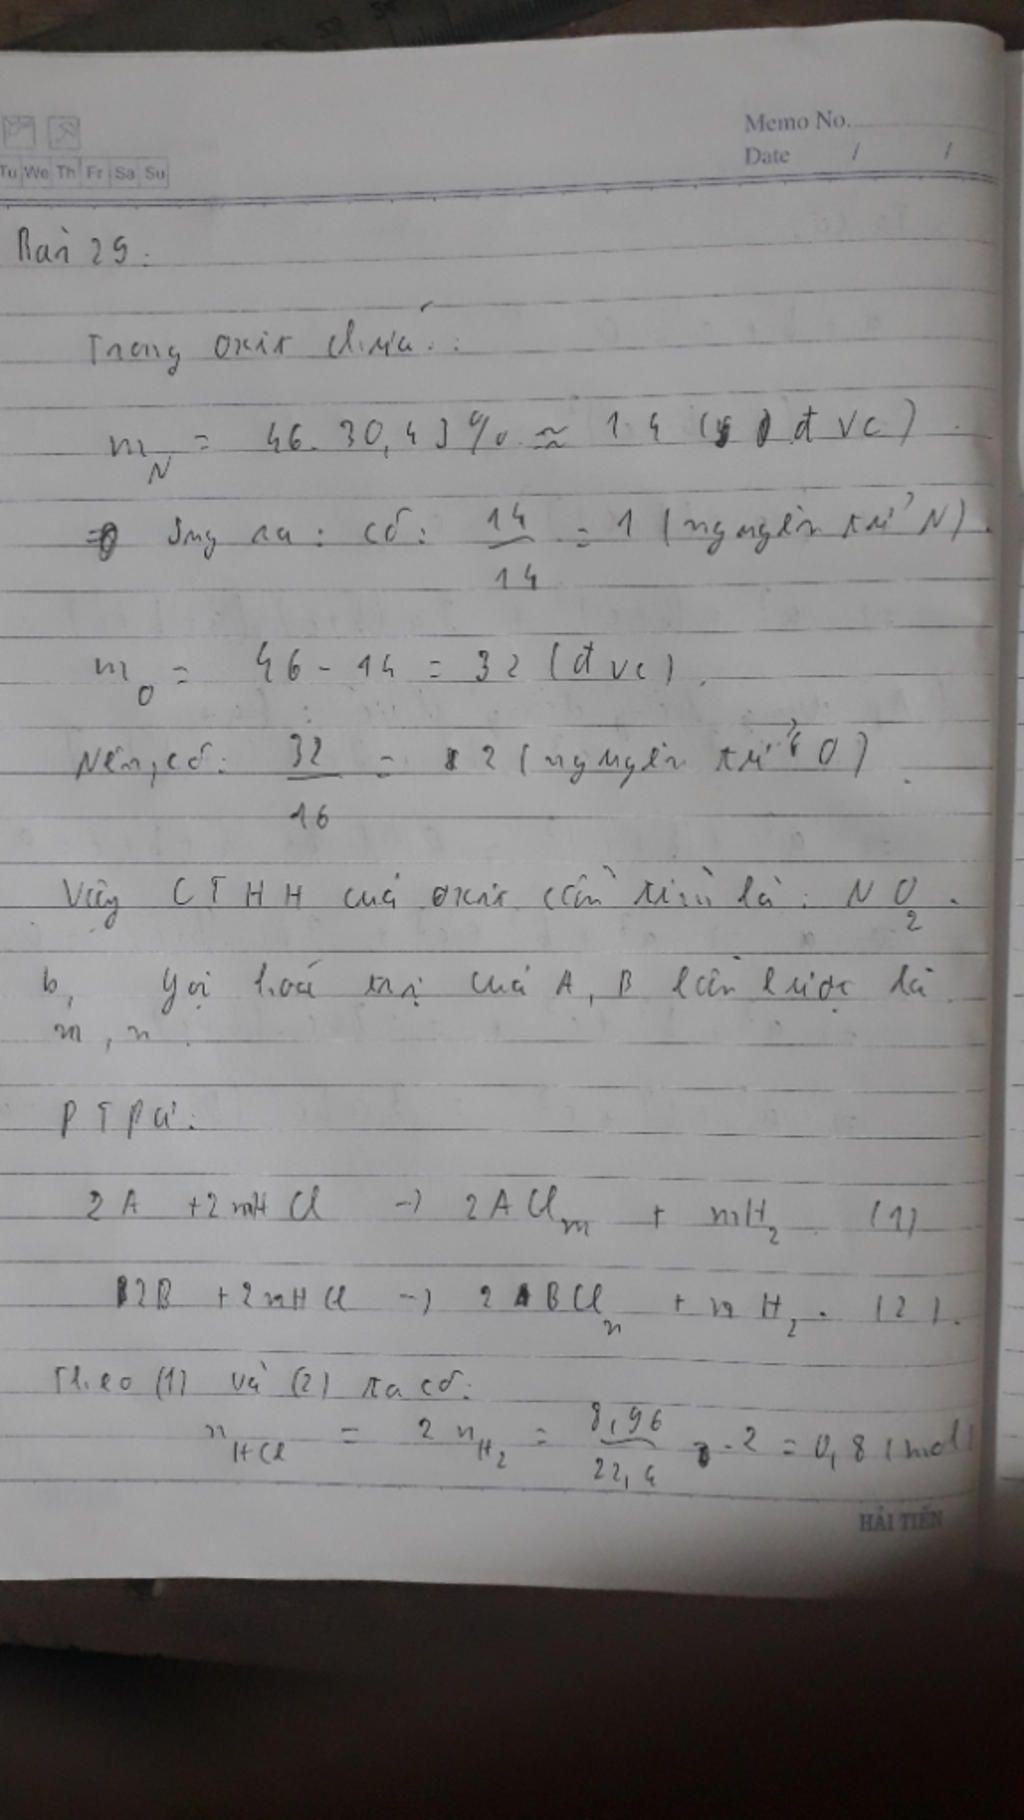 Memo No.
Date / /
Tu We Th Fr Sa Su
Bài 25:
Trong oxit chứa:
m_N = 46.30,43% ≈ 14 (đvc)
=> Suy ra: có: 14/14 = 1 (nguyên tử N).
m_O = 46 - 14 = 32 (đvc).
Nên, có: 32/16 = 2 (nguyên tử O).
Vậy CTHH của oxit cần tìm là: NO₂.
b, Gọi hoá trị của A, B lần lượt là
m, n.
PTPƯ:
2A + 2mHCl -> 2ACl_m + mH₂ (1)
2B + 2nHCl -> 2BCl_n + nH₂. (2).
Theo (1) và (2) ta có:
n_HCl = 2n_H₂ = 8,96/22,4 . 2 = 0,8 (mol)
HẢI TIẾN